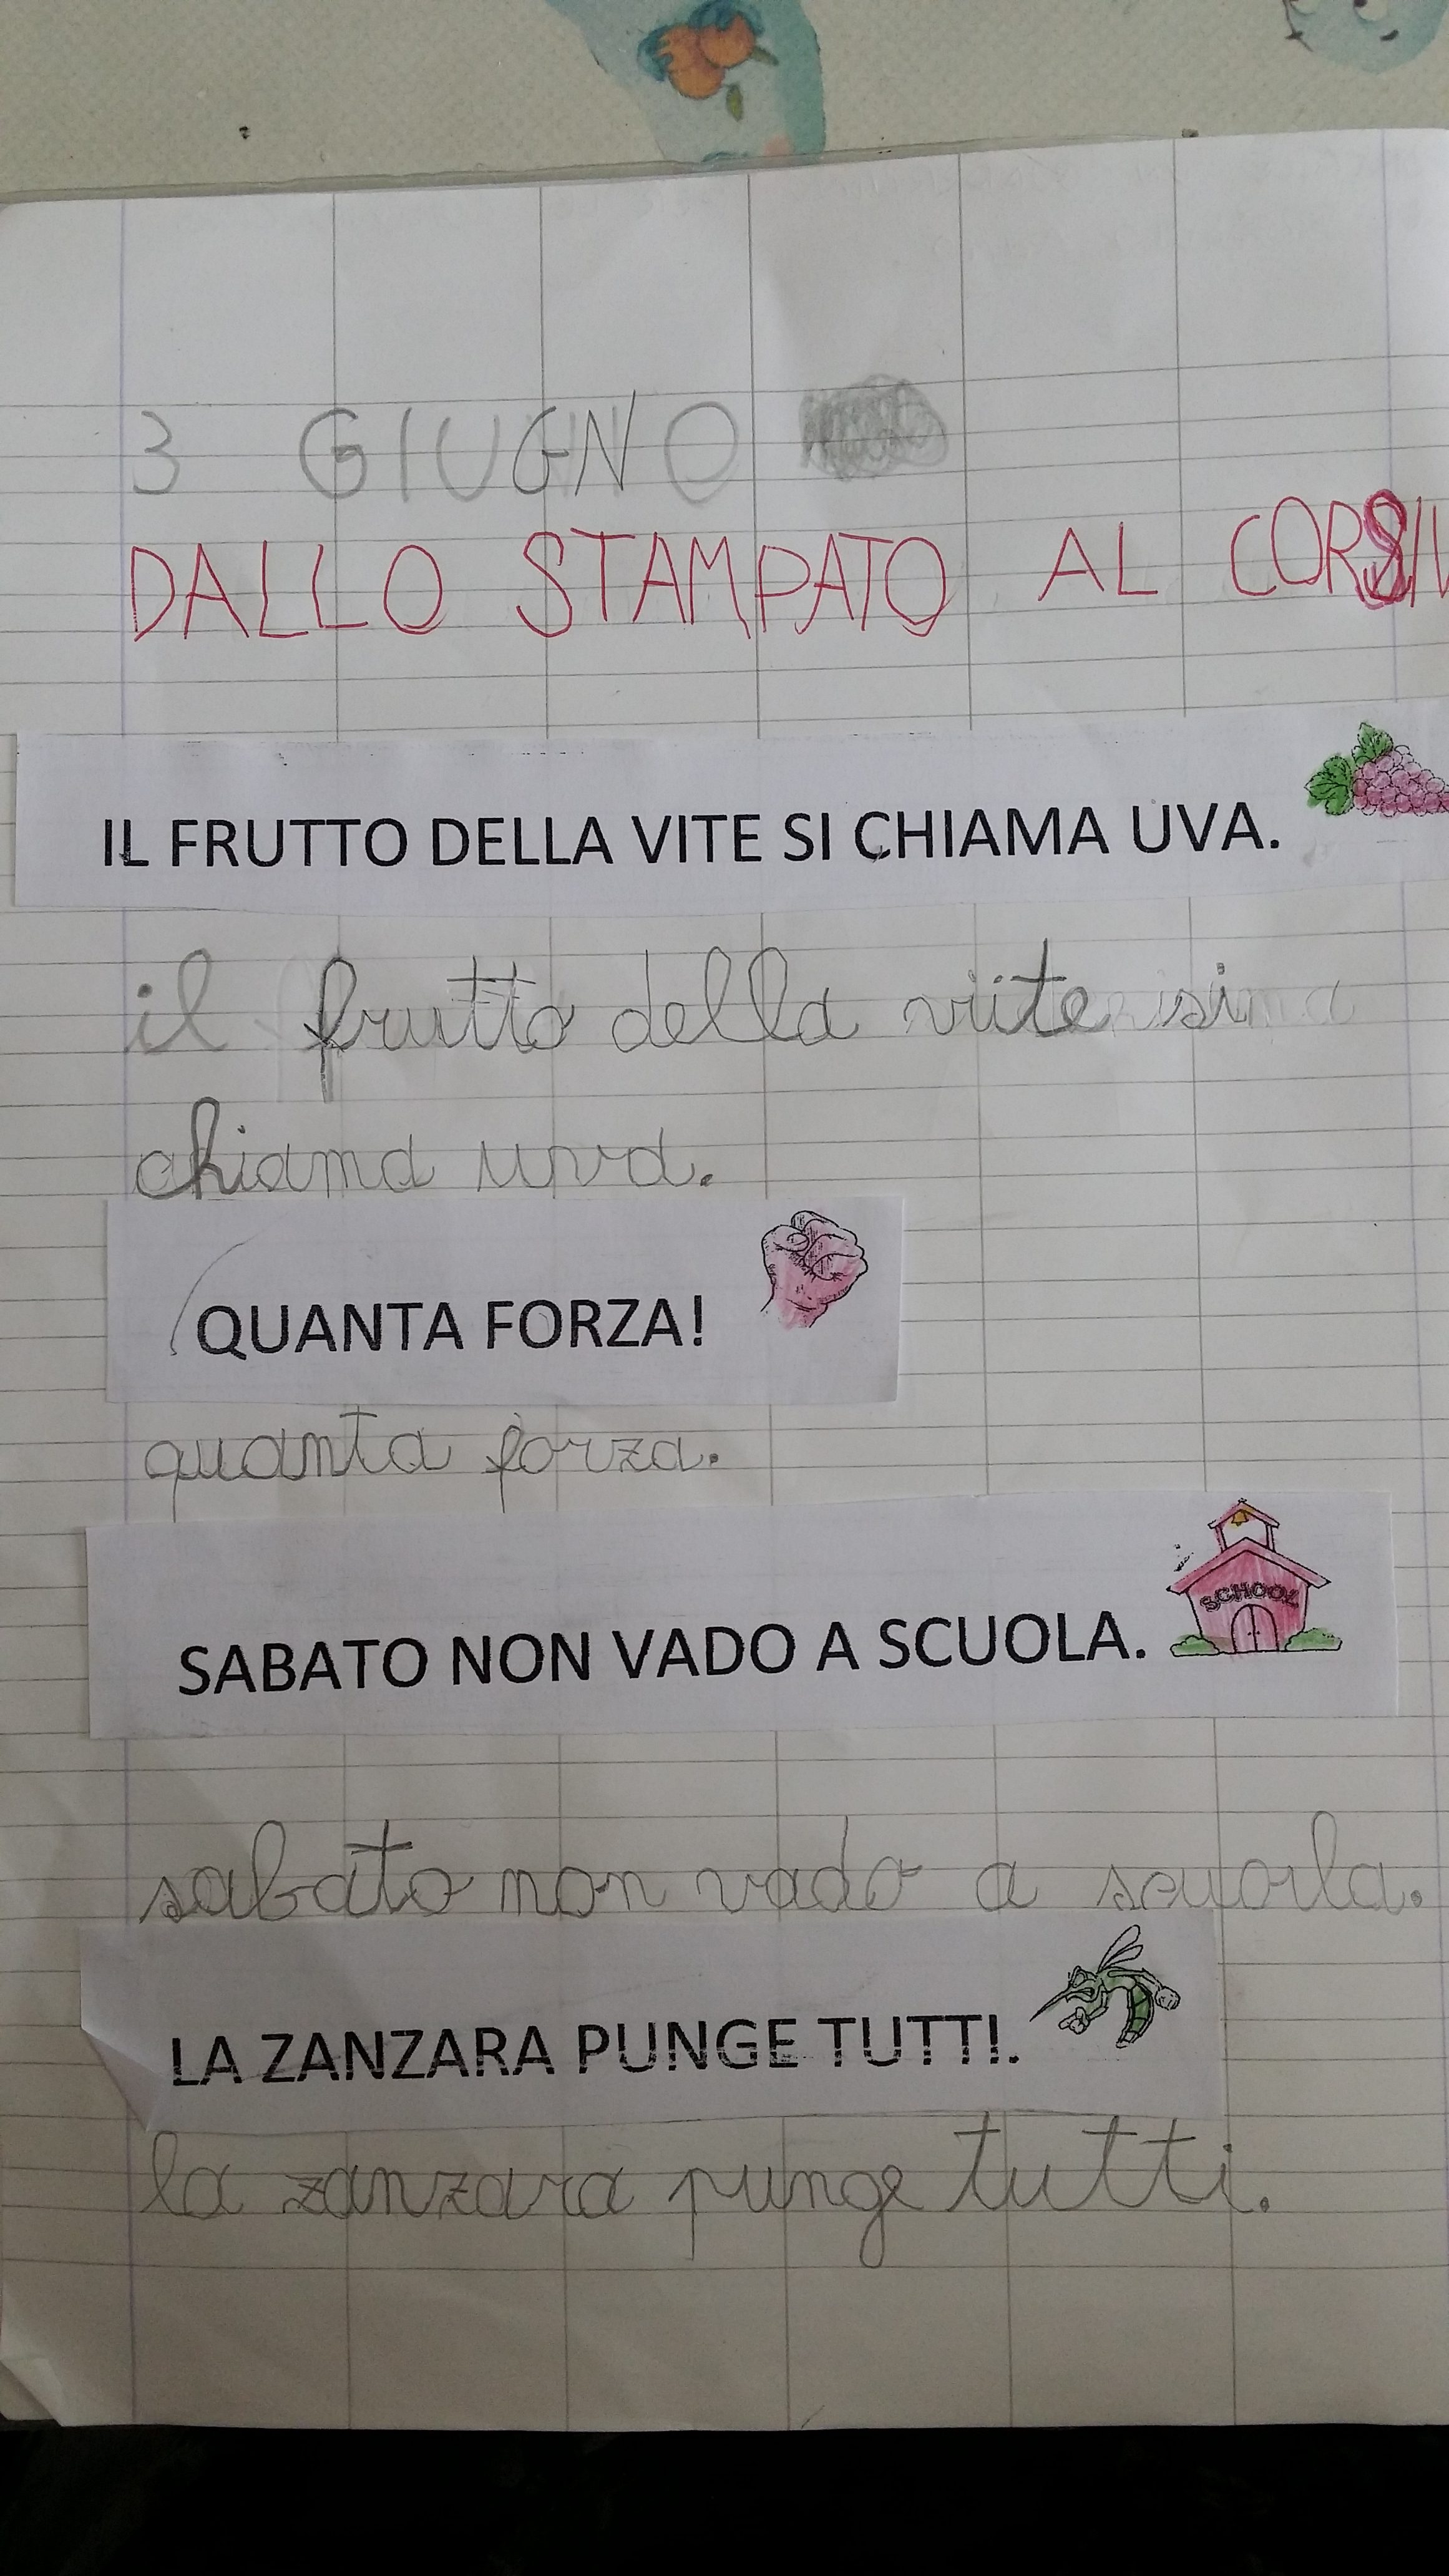 3 GIUGNO
DALLO STAMPATO AL CORSIV
IL FRUTTO DELLA VITE SI CHIAMA UVA.
il frutto della viite si
chiama uva.
QUANTA FORZA!
quanta forza.
SCHOOL
SABATO NON VADO A SCUOLA.
sabato non vado a scuola.
LA ZANZARA PUNGE TUTTI.
la zanzara punge tutti.